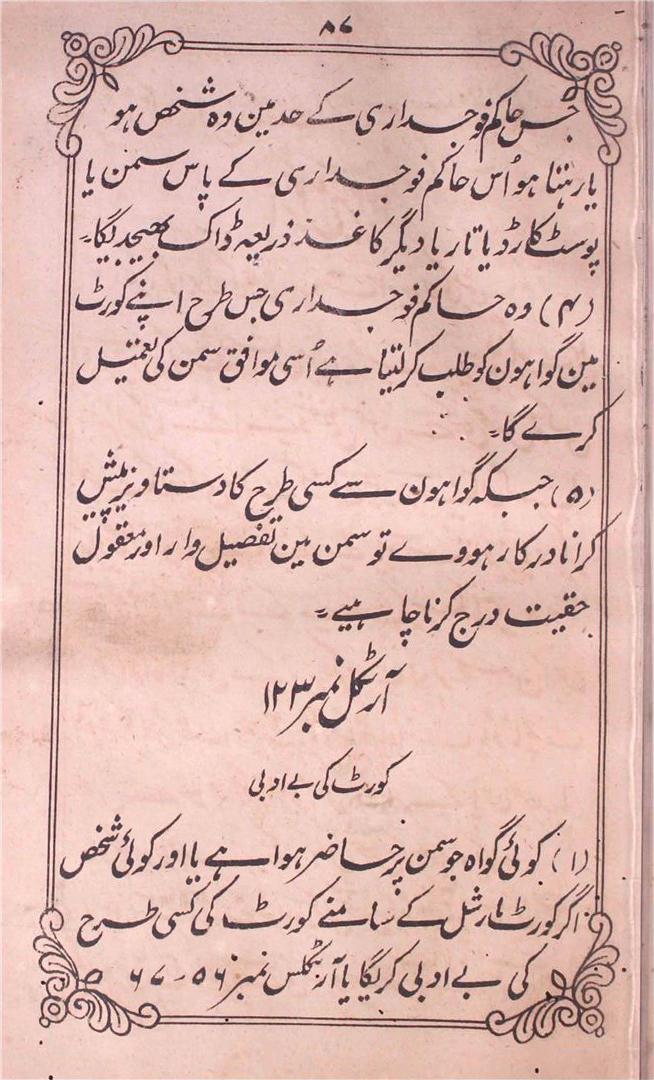 ۸۷
جس حاکم فوجداری کے حد مین وہ شخص ہو
یا رہتا ہو اُس حاکم فوجداری کے پاس سمن یا
پوسٹ کارڈ یا تار یا دیگر کاغذ ذریعہ ڈاک بھیجدیگا۔
(۴) وہ حاکم فوجداری جس طرح اپنے کورٹ
مین گواہون کو طلب کر لیتا ہے اُسی موافق سمن کی تعمیل
کرے گا۔
(۵) جبکہ گواہون سے کسی طرح کا دستاویز پیش
کرانا درکار ہووے تو سمن مین تفصیل وار اور معقول
حقیت درج کرنا چاہیے۔
آرٹکل نمبر ۱۲۳
کورٹ کی بے ادبی
(۱) کوئی گواہ جو سمن پر حاضر ہوا ہے یا اور کوئی شخص
اگر کورٹ مارشل کے سامنے کورٹ کی کسی طرح
کی بے ادبی کریگا یا آرٹکلس نمبر ۵۶۔۶۷